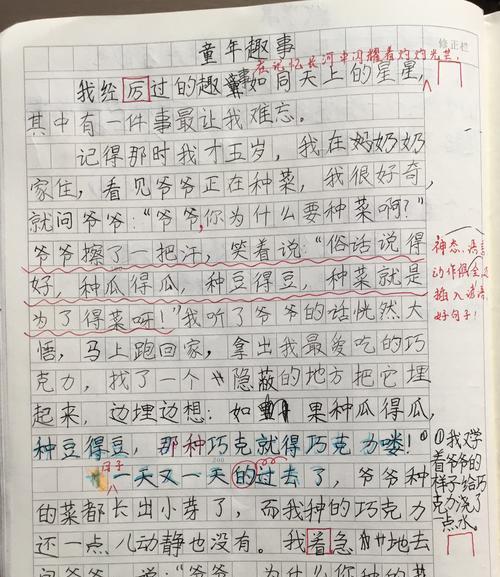 童年趣事
修正栏
在记忆长河中闪耀着灼灼光芒.
我经厉过的趣事如同天上的星星,
其中有一件事最让我难忘。
记得那时我才五岁，我在奶奶
家住，看见爷爷正在种菜，我很好奇，
就问爷爷：“爷爷,你为什么要种菜啊？”
爷爷擦了一把汗，笑着说：“俗话说得
好，种瓜得瓜，种豆得豆，种菜就是
为了得菜呀！”我听了爷爷的话恍然大
悟，马上跑回家，拿出我最爱吃的巧
克力，找了一个隐蔽的地方把它埋
起来，边埋边想：如果种瓜得瓜，
种豆得豆，那种巧克就得巧克力喽！
200
日子
一天又一天的过去了，爷爷种
的菜都长出小芽了，而我种的巧克力
还一点儿动静也没有。我着急地去
问爷爷，说：“爷爷，为什么你种的菜
神态、语言
动作俱全,
插入谚语,
好句子！
①我又学
着爷爷的
样子给巧
克力浇了
点水。